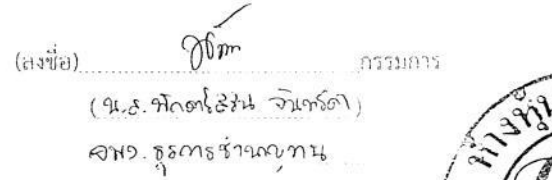 (ลงชื่อ) กรรมการ
(น.ส. จันทร์ดา)
จพง. ธุรการชำนาญงาน
ห้างหุ้น